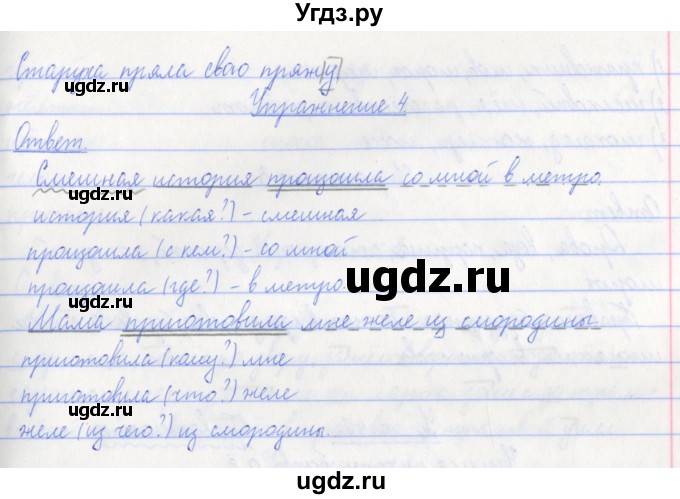 Угдз.ру
Старуха пряла свою пряжу
ugdz.ru ugdz.ru
Упражнение 4
Ответ.
Смешная история произошла со мной в метро.
ugdz.ru
история (какая?) – смешная
произошла (с кем?) – со мной
произошла (где?) – в метро.
ugdz.ru
Мама приготовила мне желе из смородины
приготовила (кому?) мне
ugdz.ru ugdz.ru
приготовила (что?) желе
желе (из чего?) из смородины.
ugdz.ru